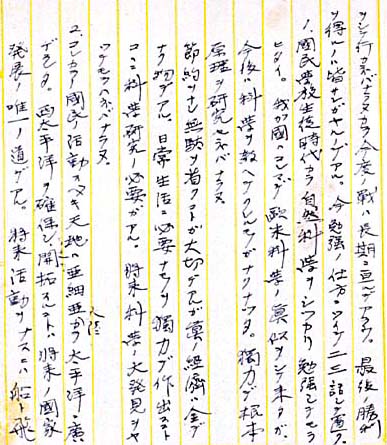 ツシ行カネバナラヌカラ今度ノ戦ハ長期ニ亘ルデアラウ。最後ノ勝ヲ
得ルノハ皆サンガヤルノデアル。今勉強ノ仕方ニツイテ二三記シテ置ク。
1.国民学校生徒時代カラ自然科学ヲシツカリ勉強シテモ
ヒタイ。我ガ国ハコレマデ欧米科学ノ真似ヲシテ来タガ、
今後ハ科学ヲ教ヘテクレルモノガナクナツタ。独力デ根本
原理ヲ研究セネバナラヌ
節約ヲナシ無駄ヲ省クコトガ大切デアルガ真ノ経済ハ金デ
ナク物デアル。日常生活ニ必要ナモノヲ独力デ作出スト
コニ科学研究ノ必要ガアル。将来科学ノ大発見ヲヤ
ツテモラハネバナラヌ。
2.コレカラ国民ノ活動スベキ天地ハ亜細亜大陸カラ太平洋ノ広
デアル。西太平洋ヲ確保シ開拓スルコトハ将来ノ国家
発展ノ唯一ノ道デアル。将来活動ヲナスニハ船ト飛